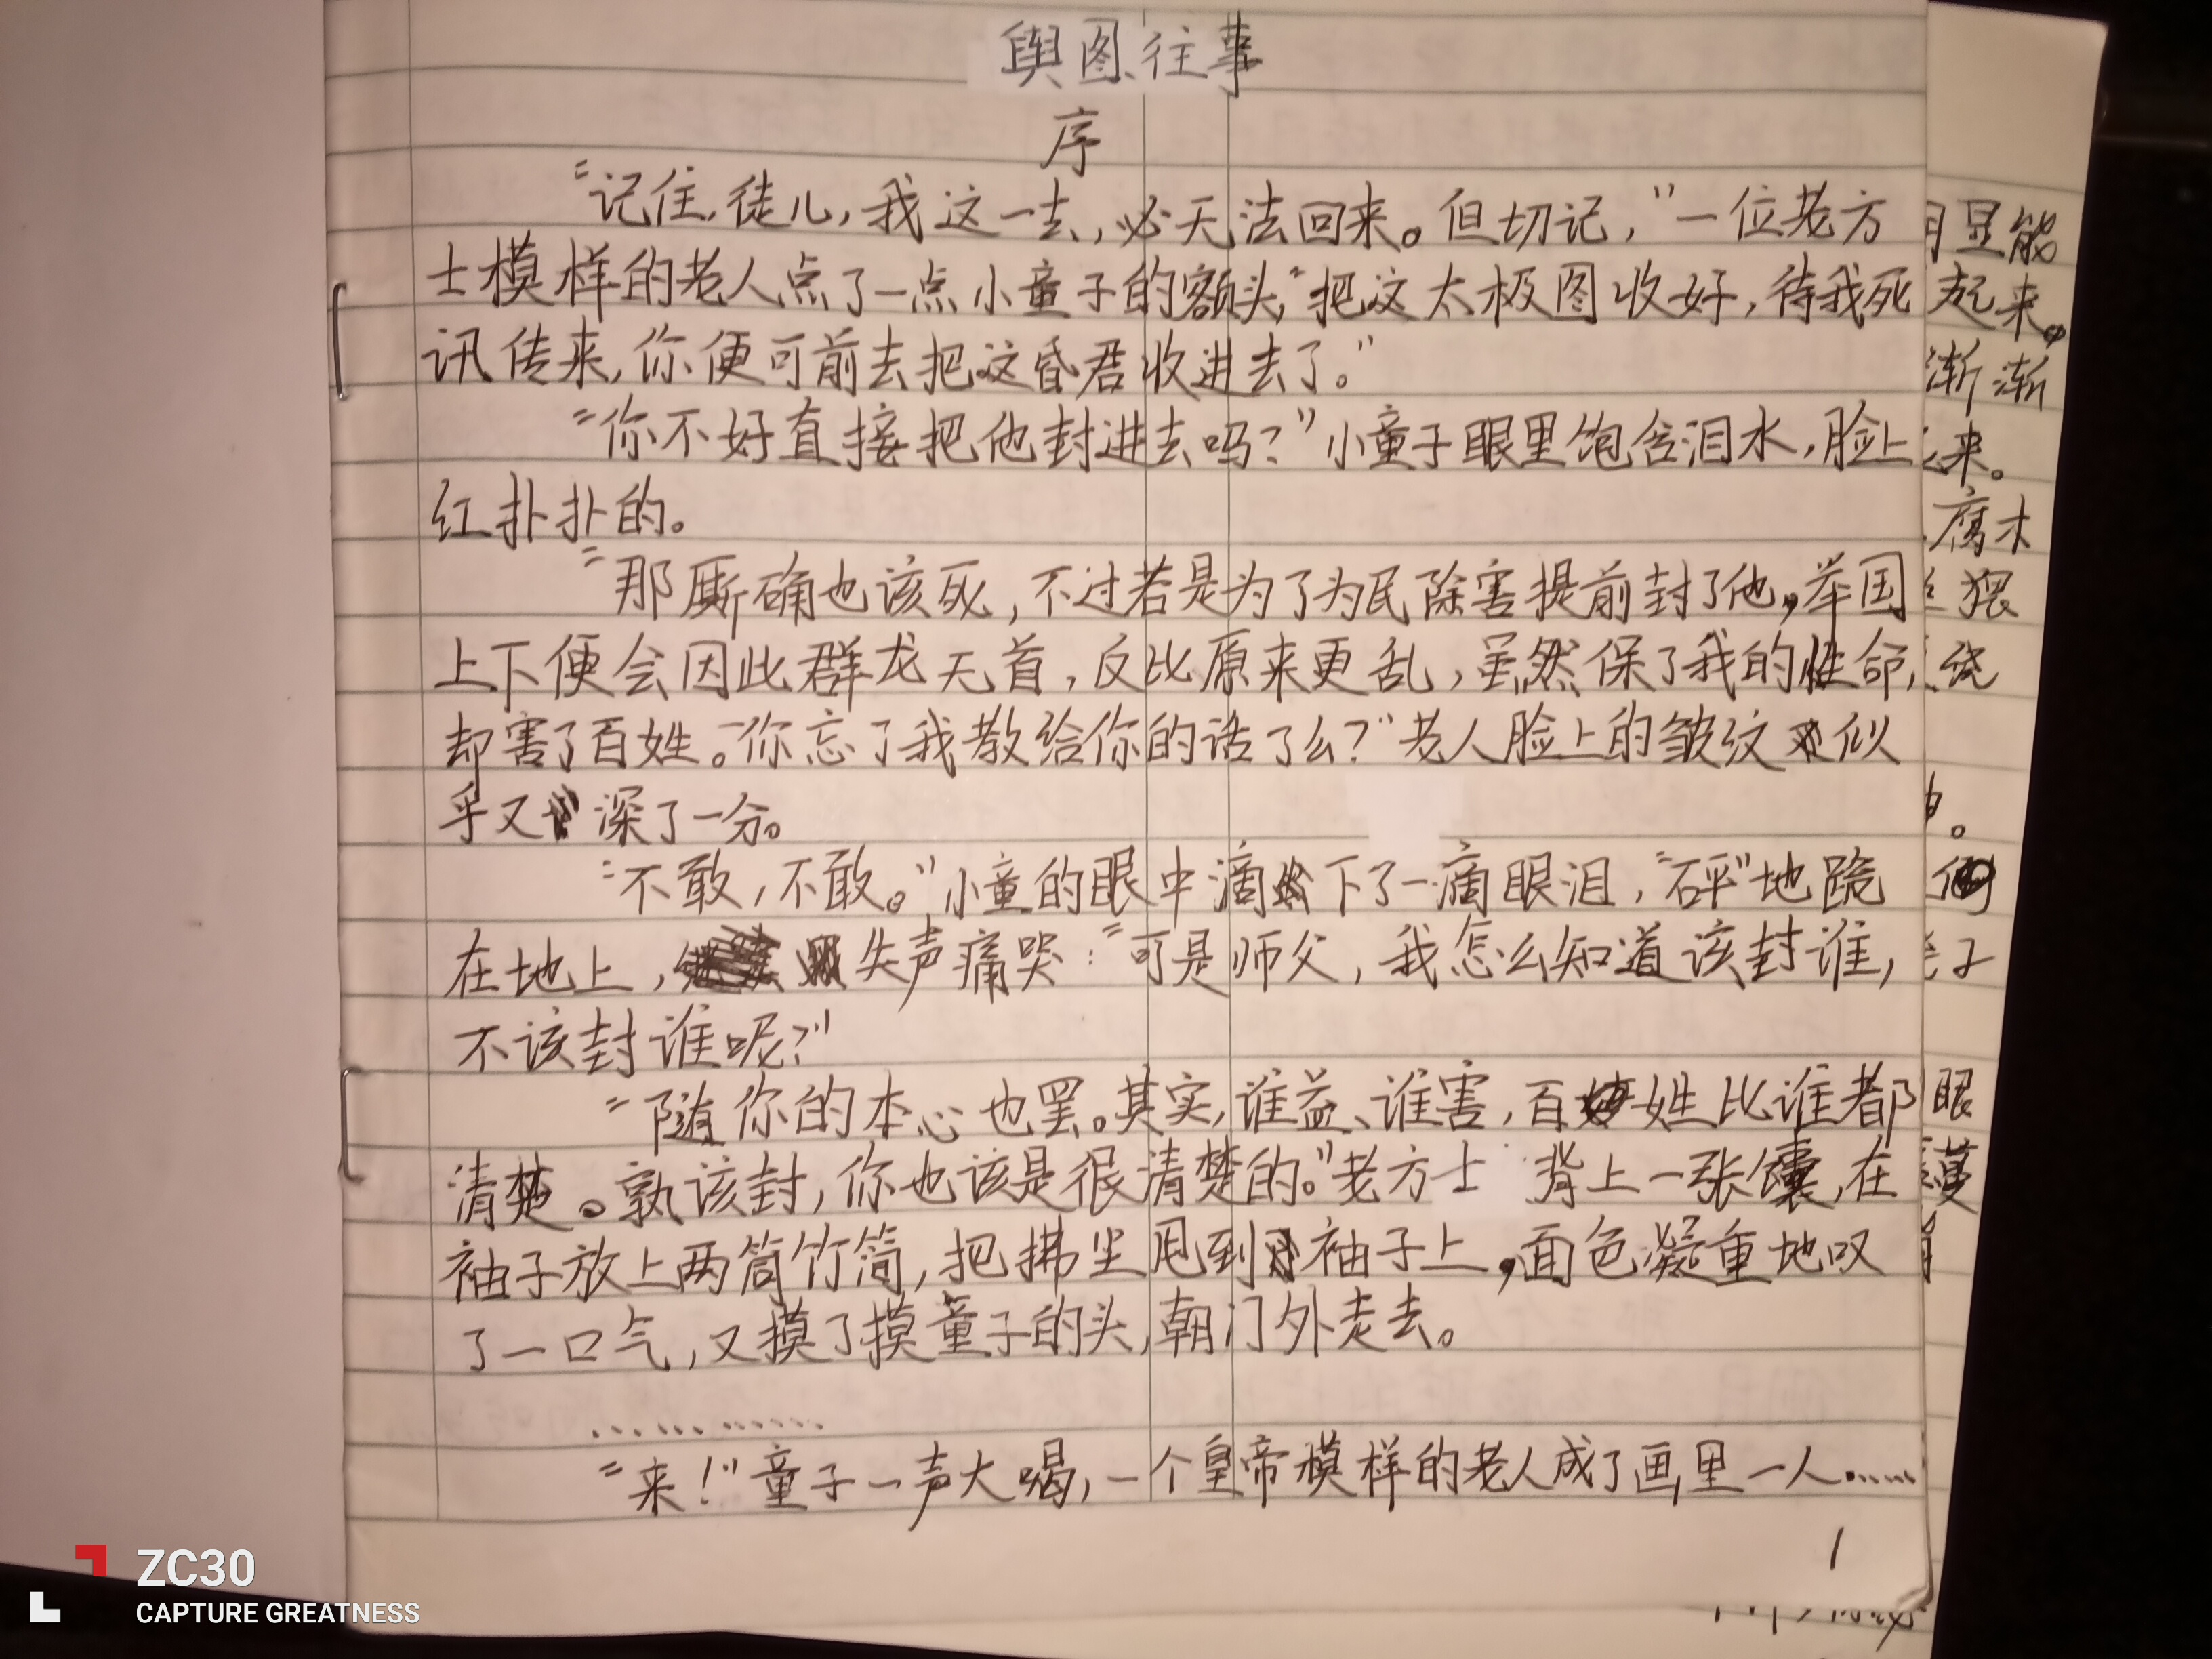 舆图往事
序
“记住,徒儿,我这一去,必无法回来。但切记,”一位老方
士模样的老人点了一点小童子的额头,“把这太极图收好,待我死
讯传来,你便可前去把这昏君收进去了。”
“你不好直接把他封进去吗?”小童子眼里饱含泪水,脸上
红扑扑的。
“那厮确也该死,不过若是为了为民除害提前封了他,举国
上下便会因此群龙无首,反比原来更乱,虽然保了我的性命,
却害了百姓。你忘了我教给你的话了么?”老人脸上的皱纹似
乎又深了一分。
“不敢,不敢。”小童的眼中滴下了一滴眼泪,“砰”地跪
在地上,失声痛哭:“可是师父,我怎么知道该封谁,
不该封谁呢?”
“随你的本心也罢。其实,谁益、谁害,百姓比谁都
清楚。孰该封,你也该是很清楚的。”老方士背上一张馕,在
袖子放上两筒竹简,把拂尘甩到袖子上,面色凝重地叹
了一口气,又摸了摸童子的头,朝门外走去。
…………
“来!”童子一声大喝,一个皇帝模样的老人成了画里一人……
1
显能
起来。
渐渐
来。
腐木
猥
绕
眼
蔓
ZC30
CAPTURE GREATNESS